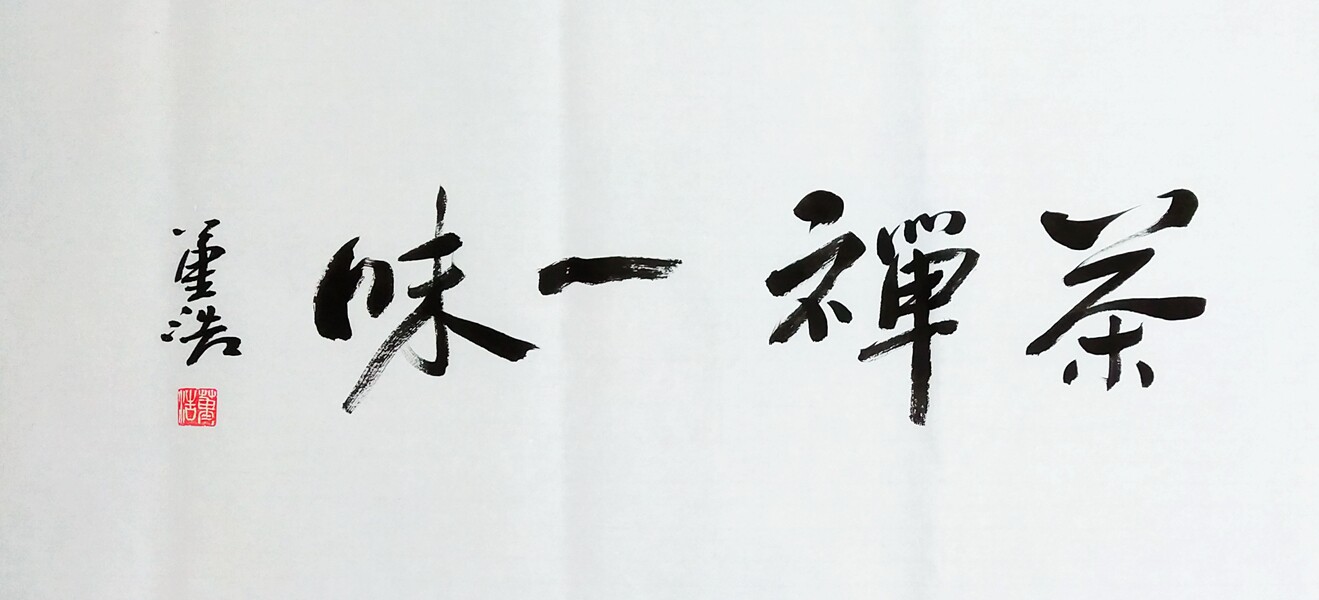 茶禪一味
董浩
董浩